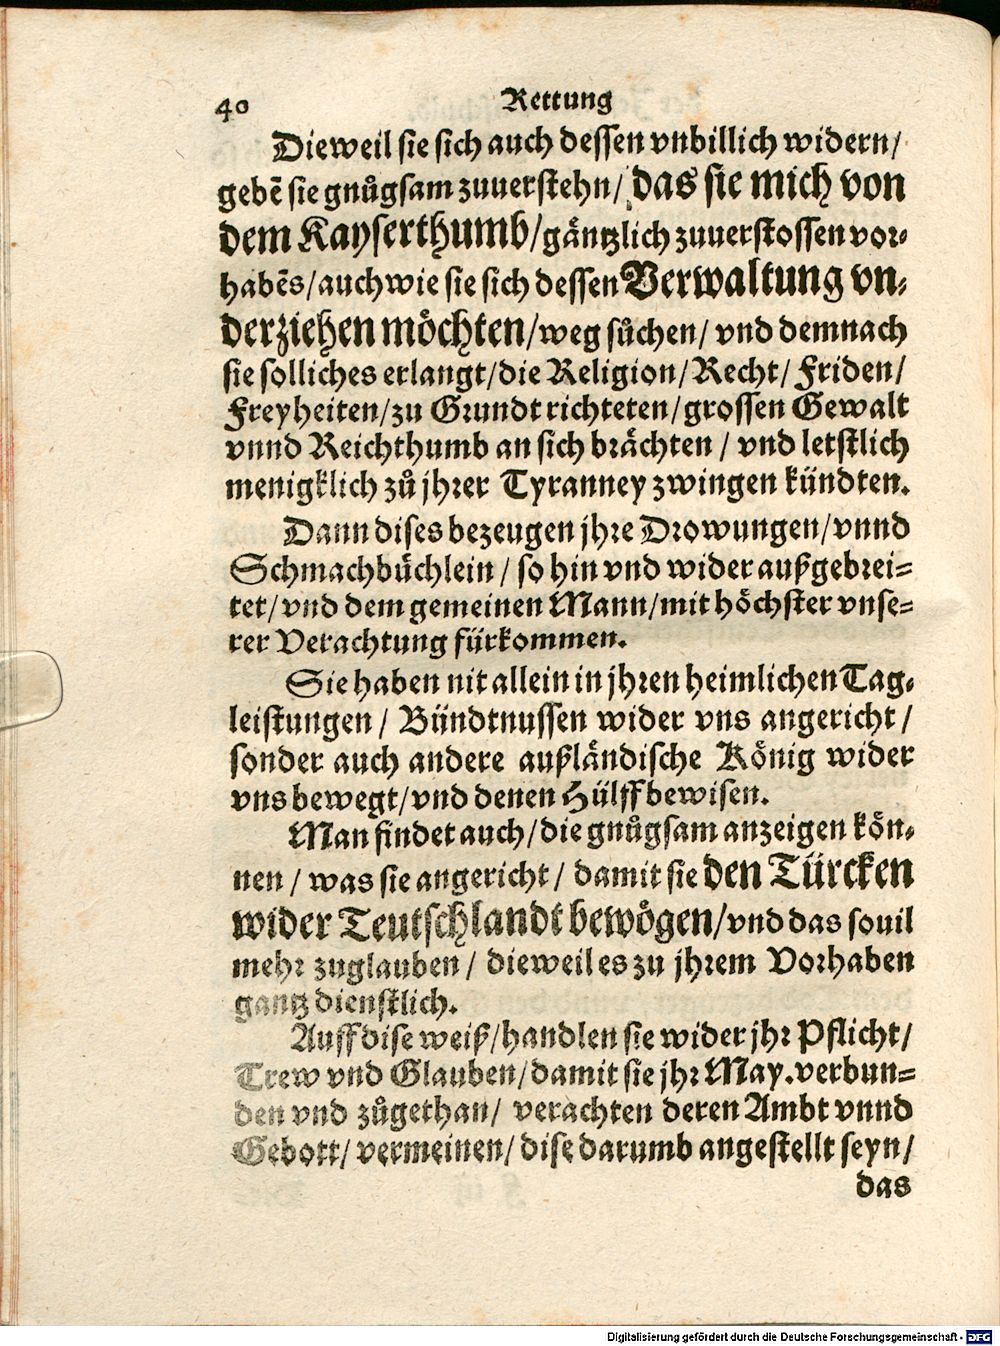 40 Rettung
Dieweil sie sich auch dessen vnbillich widern/
gebē sie gnůgsam zuuerstehn/ das sie mich von
dem Kayserthumb/gäntzlich zuuerstossen vor-
habēs/auch wie sie sich dessen Verwaltung vn-
derziehen möchten/weg sůchen/ vnd demnach
sie solliches erlangt/die Religion/Recht/ Friden/
Freyheiten/zu Grundt richteten/grossen Gewalt
vnnd Reichthumb an sich brächten / vnd letstlich
menigklich zů jhrer Tyranney zwingen kündten.
Dann dises bezeugen jhre Drowungen/vnnd
Schmachbüchlein / so hin vnd wider außgebrei-
tet/vnd dem gemeinen Mann/mit höchster vnse-
rer Verachtung fürkommen.
Sie haben nit allein in jhren heimlichen Tag-
leistungen / Bündtnussen wider vns angericht/
sonder auch andere außländische König wider
vns bewegt/vnd denen Hülff bewisen.
Man findet auch/die gnůgsam anzeigen kön-
nen / was sie angericht / damit sie den Türcken
wider Teutschlandt bewögen/vnd das souil
mehr zuglauben / dieweil es zu jhrem Vorhaben
gantz dienstlich.
Auff dise weiß/handlen sie wider jhr Pflicht/
Trew vnd Glauben/damit sie jhr May.verbun-
den vnd zůgethan/ verachten deren Ambt vnnd
Gebott/ vermeinen/ dise darumb angestellt seyn/
das
Digitalisierung gefördert durch die Deutsche Forschungsgemeinschaft - DFG